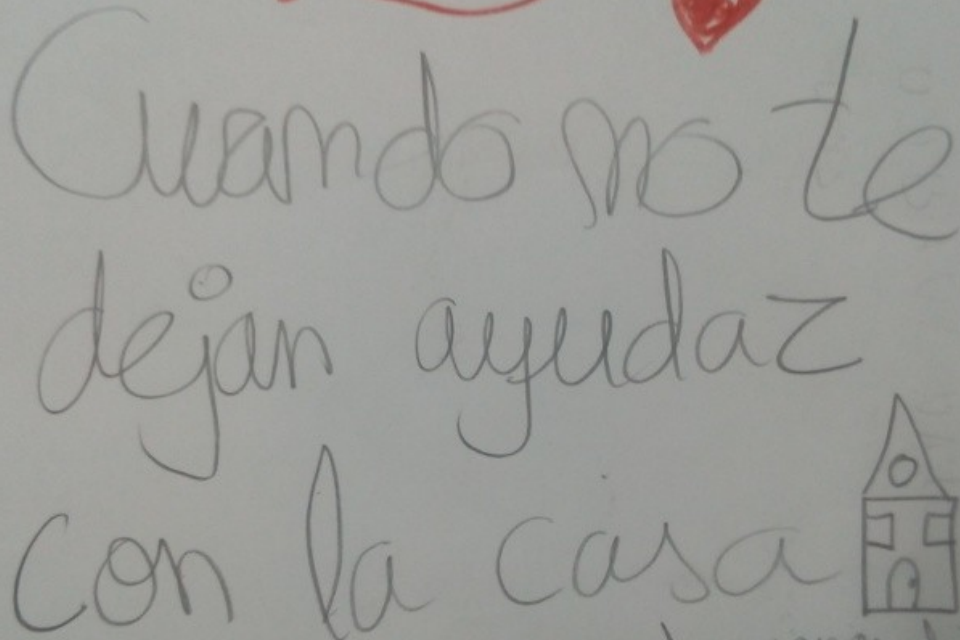 Cuando no te
dejan ayudaz
con la casa